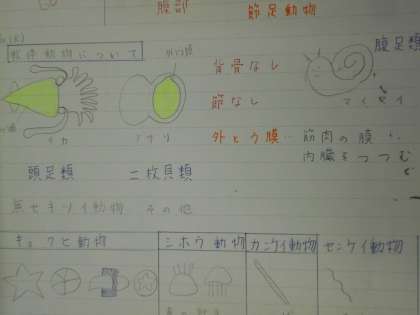 腹部 節足動物
軟体動物について
外とう膜
腹足類
背骨なし
節なし
マイマイ
外とう膜…筋肉の膜
内臓をつつむ
イカ アサリ
頭足類 二枚貝類
無セキツイ動物 その他
キョクヒ動物 シホウ動物 カンケイ動物 センケイ動物